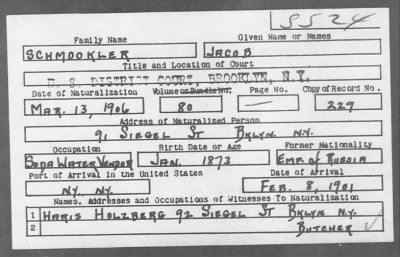 SS24
Family Name Given Name or Names
SCHMOOKLER JACOB
Title and Location of Court
U. S. DISTRICT COURT, BROOKLYN, N.Y.
Date of Naturalization Volume or Bundle No. Page No. Copy of Record No.
MAR. 13, 1906 80 — 229
Address of Naturalized Person
91 SIEGEL ST BKLYN. N.Y.
Occupation Birth Date or Age Former Nationality
SODA WATER VENDOR JAN. 1873 EMP. OF RUSSIA
Port of Arrival in the United States Date of Arrival
N.Y. N.Y. FEB. 8, 1901
Names, Addresses and Occupations of Witnesses To Naturalization
1 HARIS HOLZBERG 92 SIEGEL ST BKLYN N.Y.
2 BUTCHER ✓